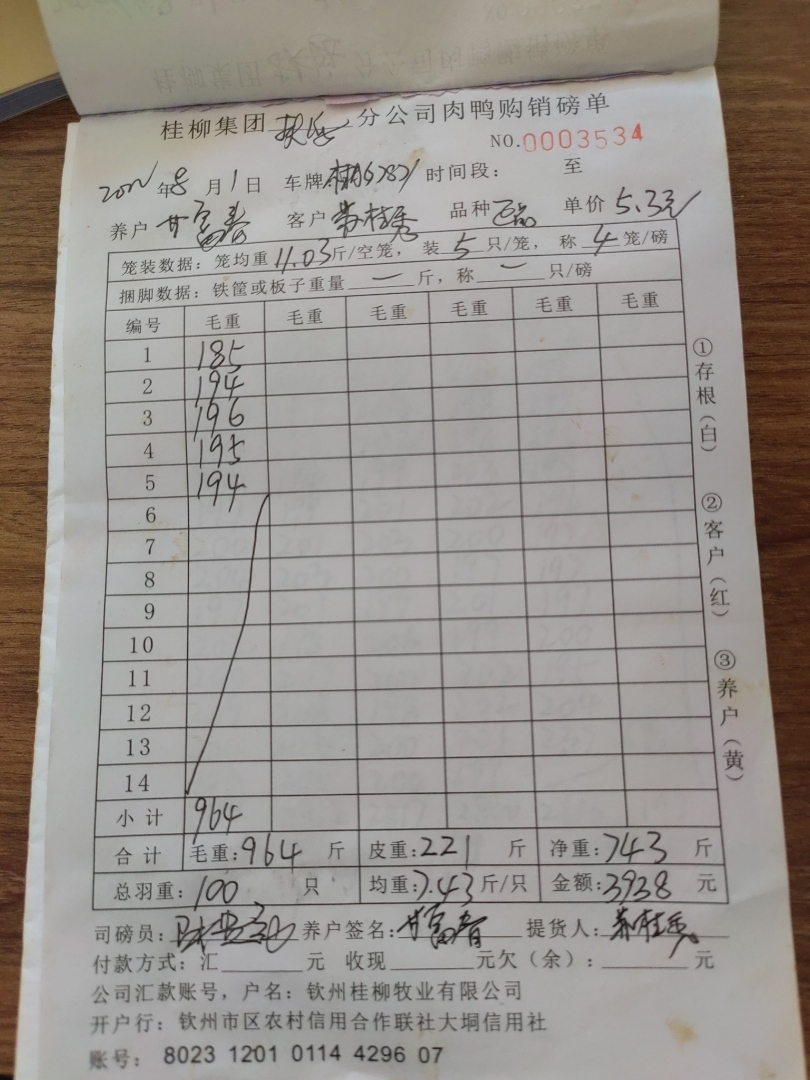 桂柳集团 分公司肉鸭购销磅单
NO.0003534
年8月1日 车牌: 时间段: 至
养户 甘富春 客户 苏桂秀 品种 单价 5.3元
笼装数据: 笼均重 11.03 斤/空笼, 装 5 只/笼, 称 4 笼/磅
捆脚数据: 铁筐或板子重量 一 斤, 称 一 只/磅
编号 毛重 毛重 毛重 毛重 毛重 毛重
1 185
2 194
3 196
4 195
5 194
6
7
8
9
10
11
12
13
14
小计 964
合计 毛重: 964 斤 皮重: 221 斤 净重: 743 斤
总羽重: 100 只 均重: 7.43 斤/只 金额: 3938 元
司磅员: 养户签名: 甘富春 提货人: 苏桂秀
付款方式: 汇 元 收现 元欠(余): 元
公司汇款账号, 户名: 钦州桂柳牧业有限公司
开户行: 钦州市区农村信用合作联社大垌信用社
账号: 8023 1201 0114 4296 07
①存根(白) ②客户(红) ③养户(黄)